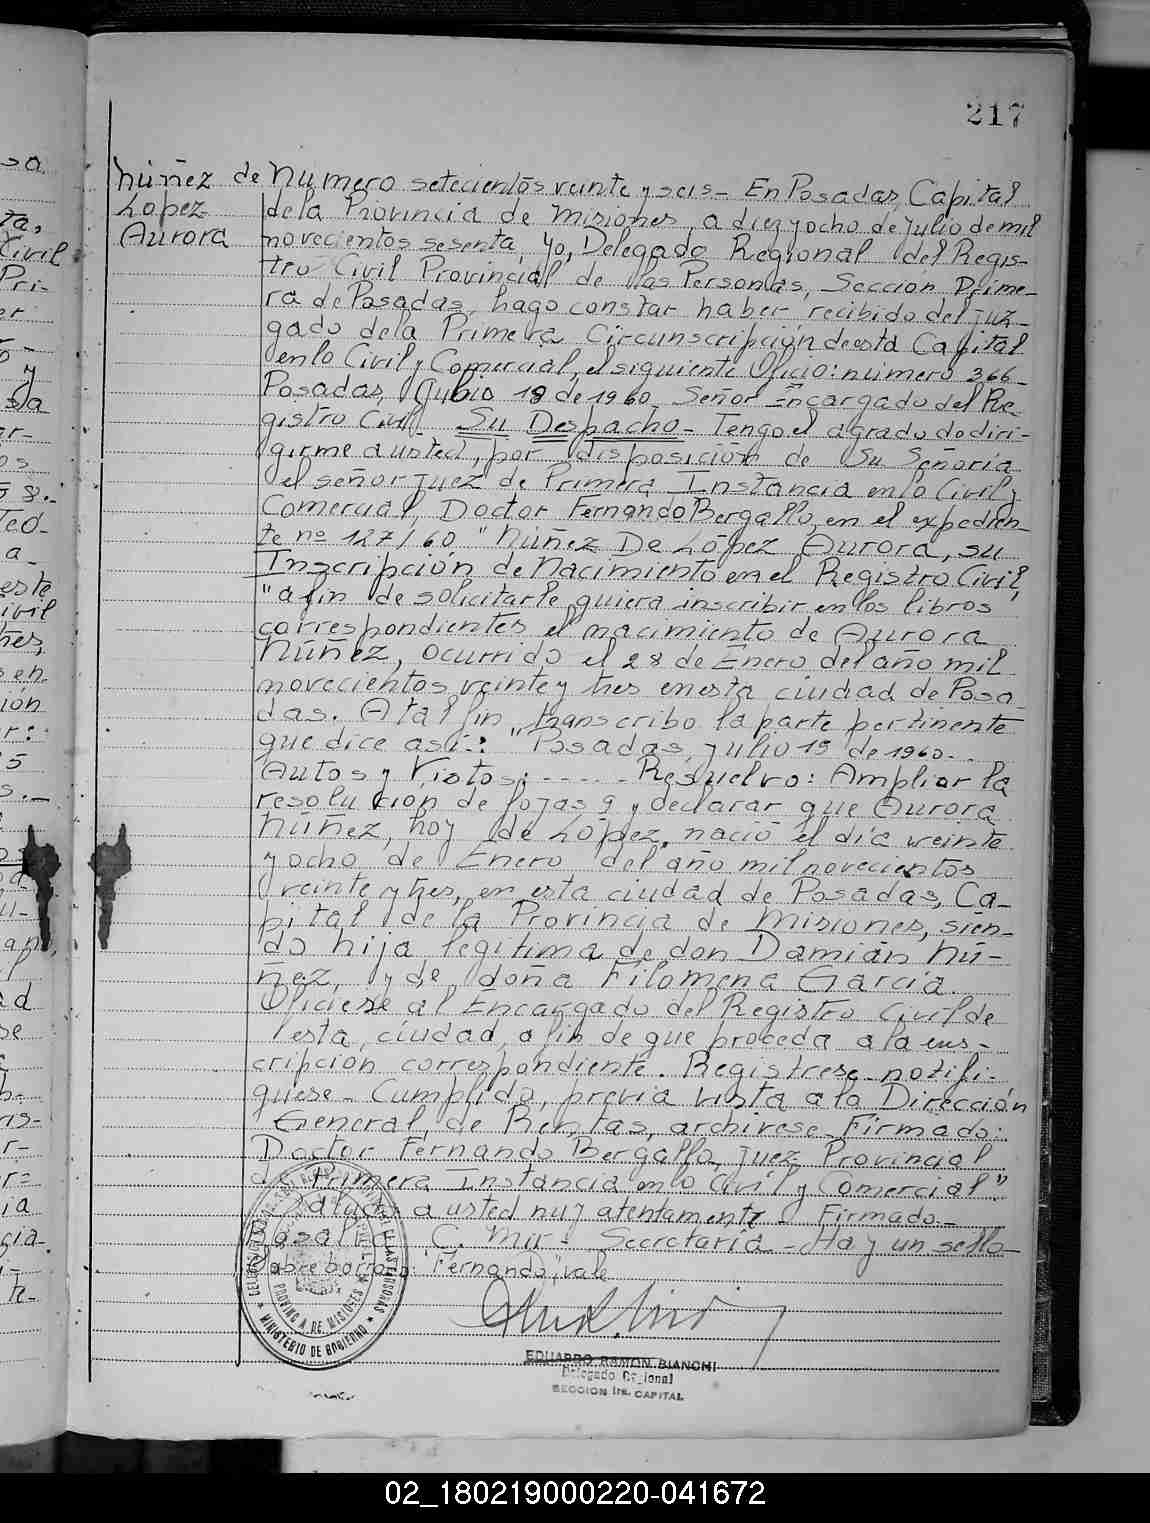 217
Núñez de
Lopez
Aurora
Numero setecientos veinte y seis - En Posadas, Capital
de la Provincia de Misiones, a diez y ocho de julio de mil
novecientos sesenta, yo, Delegado Regional del Regis-
tro Civil Provincial de las Personas, Seccion Prime-
ra de Posadas, hago constar haber recibido del juz-
gado de la Primera Circunscripción de esta Capital
en lo Civil y Comercial, el siguiente Oficio: número 366-
Posadas, Julio 18 de 1960. Señor Encargado del Re-
gistro Civil Su Despacho - Tengo el agrado de diri-
girme a usted, por disposición de Su Señoría
el señor juez de Primera Instancia en lo Civil y
Comercial, Doctor Fernando Bergallo, en el expedien-
te nº 127/60 "Núñez De López Aurora, su
Inscripción de Nacimiento en el Registro Civil,
"a fin de solicitarle quiera inscribir en los libros
correspondientes el nacimiento de Aurora
Núñez, ocurrido el 28 de Enero del año mil
novecientos veinte y tres en esta ciudad de Posa
das. A tal fin transcribo la parte pertinente
que dice así: "Posadas, julio 15 de 1960-.
Autos y Vistos: - - - - - Resuelvo: Ampliar la
resolución de fojas 9 y declarar que Aurora
Núñez, hoy de López, nació el día veinte
y ocho de Enero del año mil novecientos
veinte y tres, en esta ciudad de Posadas, Ca-
pital de la Provincia de Misiones, sien-
do hija legítima de don Damián Nú-
ñez, y de doña Filomena Garcia.
Ofíciese al Encargado del Registro Civil de
esta ciudad, a fin de que proceda a la ins-
cripción correspondiente. Registrese notifi-
quese - Cumplido, previa vista a la Dirección
General de Rentas, archivese. Firmado:
Doctor Fernando Bergallo, juez Provincial
de Primera Instancia en lo Civil y Comercial"
Saludo a usted muy atentamente - Firmado:-
C. Mir - Secretaria - Hay un sello
Sobre borrado: "Fernando", vale
MINISTERIO DE GOBIERNO
PROVINCIA DE MISIONES
EDUARDO RAMON BIANCHI
Delegado Regional
SECCION 1ra. CAPITAL
02_180219000220-041672